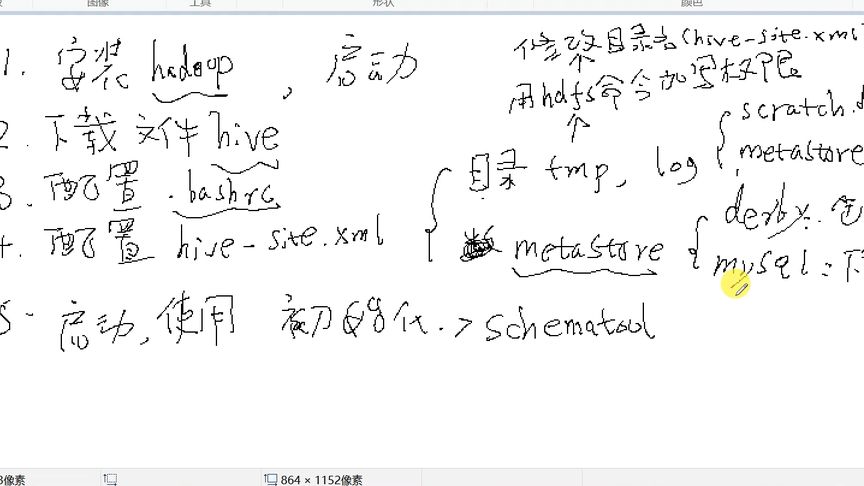 图像
工具
形状
颜色
1. 安装 hadoop, 启动
2. 下载文件 hive
3. 配置 .bashrc
4. 配置 hive-site.xml
修改目录名(hive-site.xml
用hdfs命令加写权限
目录 tmp, log
scratch.d
metastore
metastore
derby:
mysql: 下
5. 启动, 使用 初始化 -> schematool
像素
864 × 1152像素